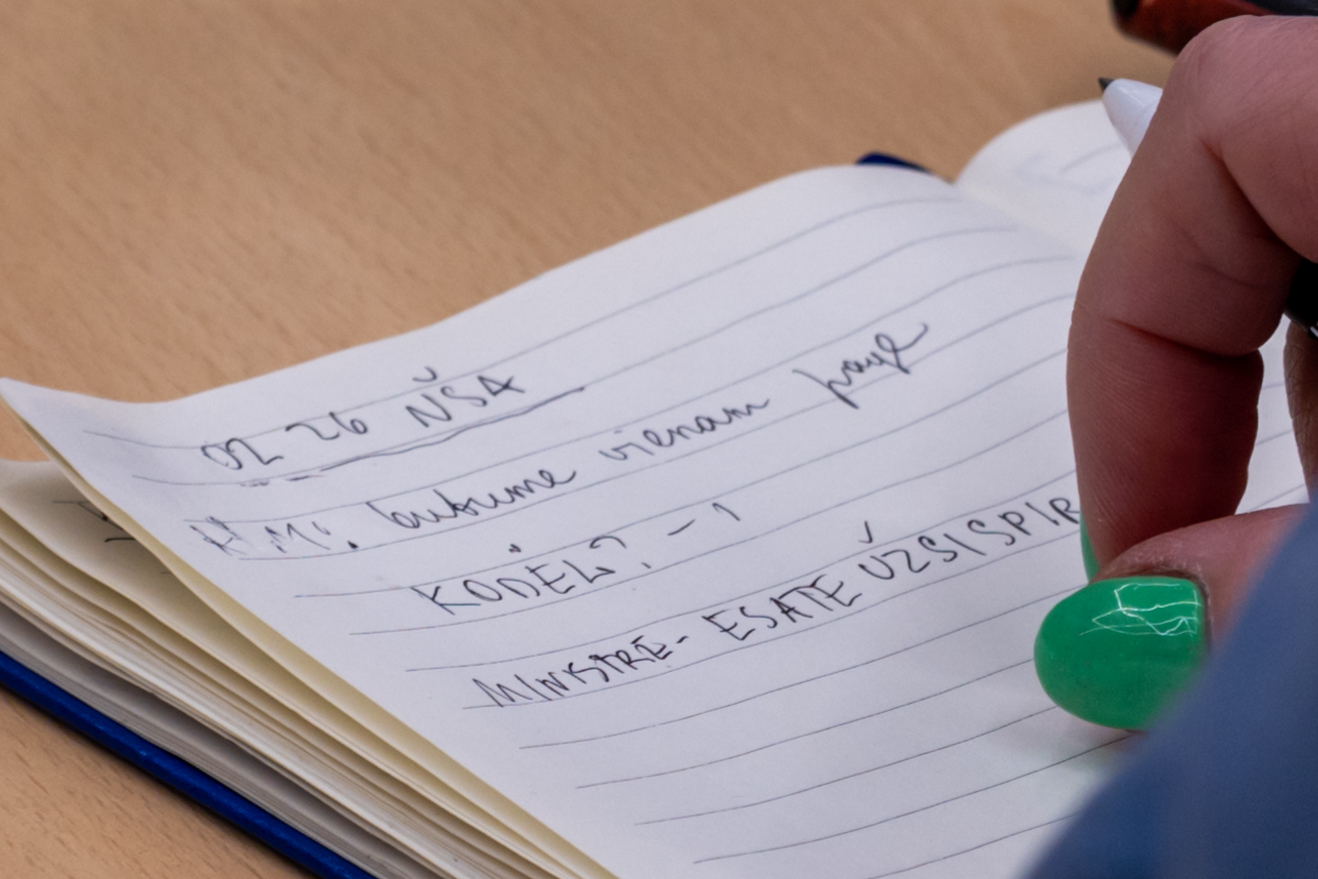 02 26 NŠA
bukume vienam
KODĖL? - 1
MINISTRE - ESATE UŽSISPIR